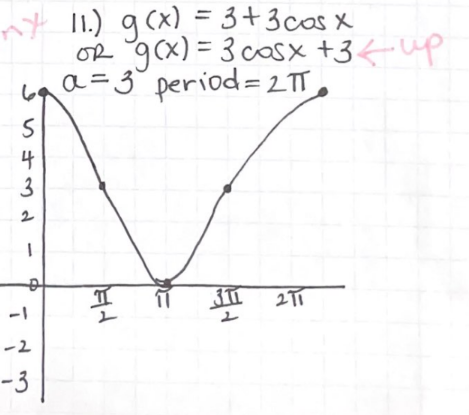 11.) g(x) = 3+3cosx
OR g(x) = 3cosx +3 ← up
a = 3 period = 2π
6
5
4
3
2
1
0
π/2 π 3π/2 2π
-1
-2
-3